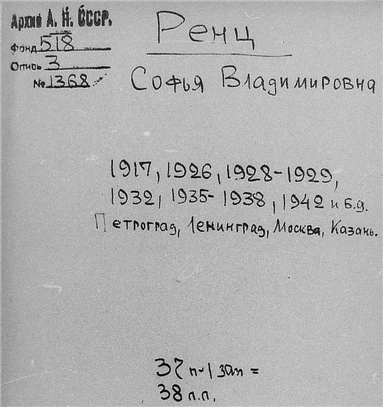 Архив А. Н. СССР.
Фонд 518
Опись 3
№ 1368
Ренц
Софья Владимировна
1917, 1926, 1928-1929,
1932, 1935-1938, 1942 и б.д.
Петроград, Ленинград, Москва, Казань.
37 п-1 зап =
38 п.п.